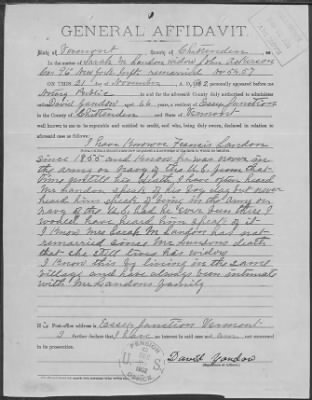 GENERAL AFFIDAVIT.
State of Vermont, County of Chittenden
In the matter of Sarah M Landon widow John
Co. 96 New York
on this 21 day of November A.D. 1902 personally appeared before me
Notary Public in and for the aforesaid County duly authorized to administer
oaths David Yandow aged 66 years, a resident of Essex Junction
in the County of Chittenden and State of Vermont
well known to me to be reputable and entitled to credit, and who, being duly sworn, declared in relation to
aforesaid case as follows:
I have Known Francis Landon
since 1855 and Know he was never in
the army or navy of the U.S. from that
time until his death I have often heard
Mr Landon speak of his but never
heard him speak of being in the army or
navy of the U.S. had he ever been there I
would have heard him speak of it
I Know Mrs Sarah M Landon has not
remarried since Mr Landons death
that she still lives his widow
I Know this by living in the same
village and have always been intimate
with Mr Landons family
Post-office address is Essex Junction Vermont
I further declare that I have no interest in said case and am not concerned
in its prosecution.
David Yandow
PENSION
U.S.
1902
OFFICE